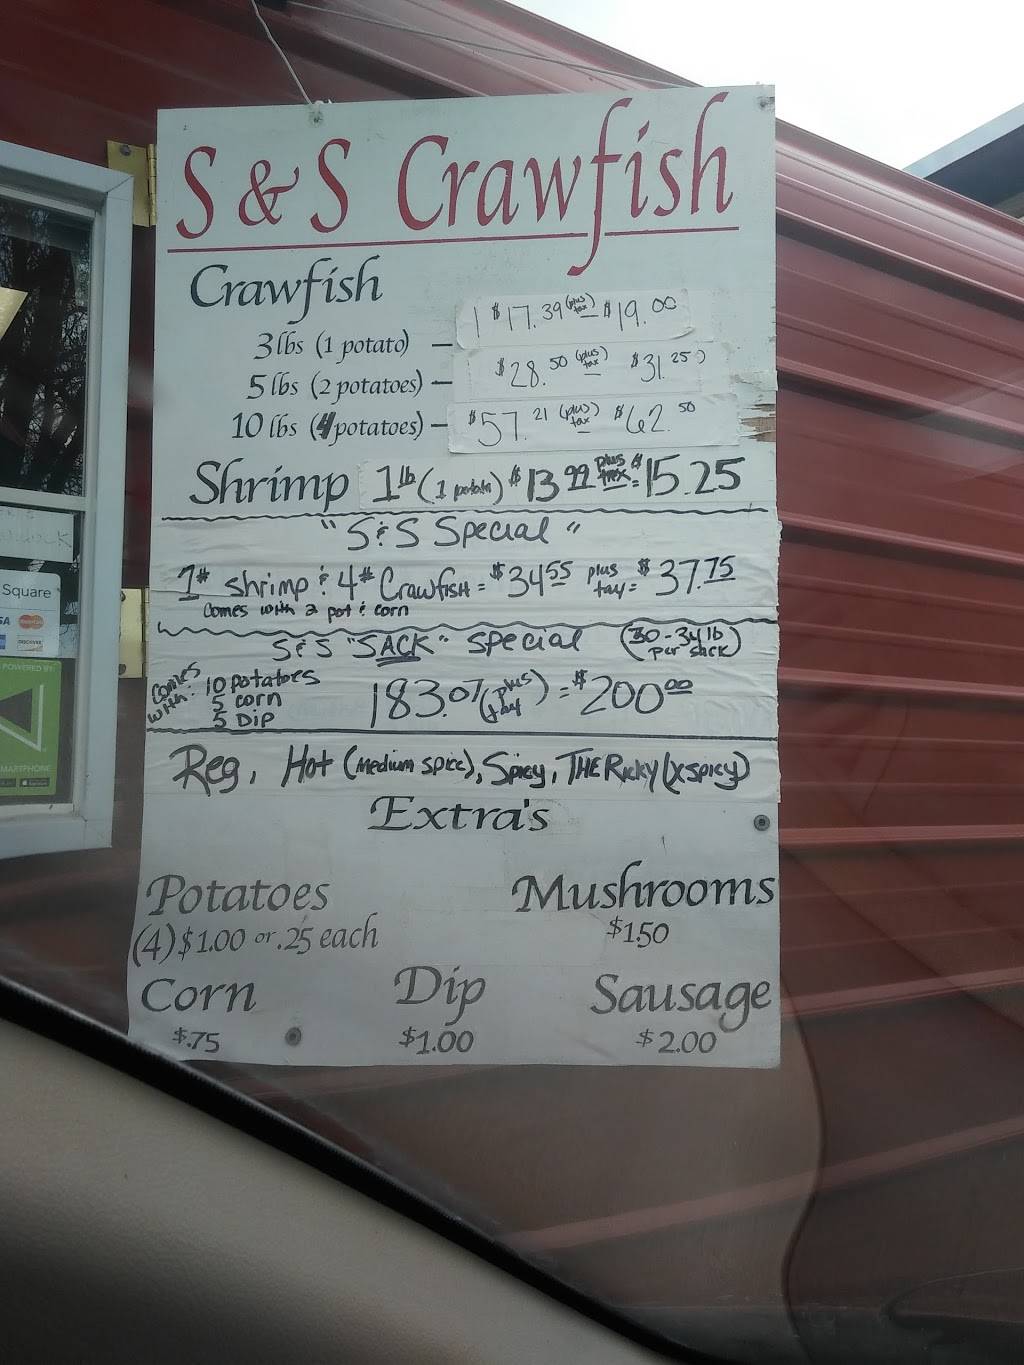 S & S Crawfish
Crawfish
3 lbs (1 potato) — $17.39 (plus tax) $19.00
5 lbs (2 potatoes) — $28.50 (plus tax) $31.25
10 lbs (4 potatoes) — $57.21 (plus tax) $62.50
Shrimp 1 lb (1 potato) $13.99 plus tax = $15.25
"S & S Special"
1# shrimp & 4# Crawfish = $34.55 plus tax = $37.75
Comes with 2 pot & corn
S & S "SACK" Special (30-34 lb per sack)
Comes with: 10 potatoes
5 corn
5 Dip
183.07 (plus tax) = $200.00
Reg, Hot (medium spice), Spicy, THE Ricky (xspicy)
Extra's
Potatoes
(4) $1.00 or .25 each
Mushrooms
$1.50
Corn
$.75
Dip
$1.00
Sausage
$2.00
Square
VISA
DISCOVER
POWERED BY: